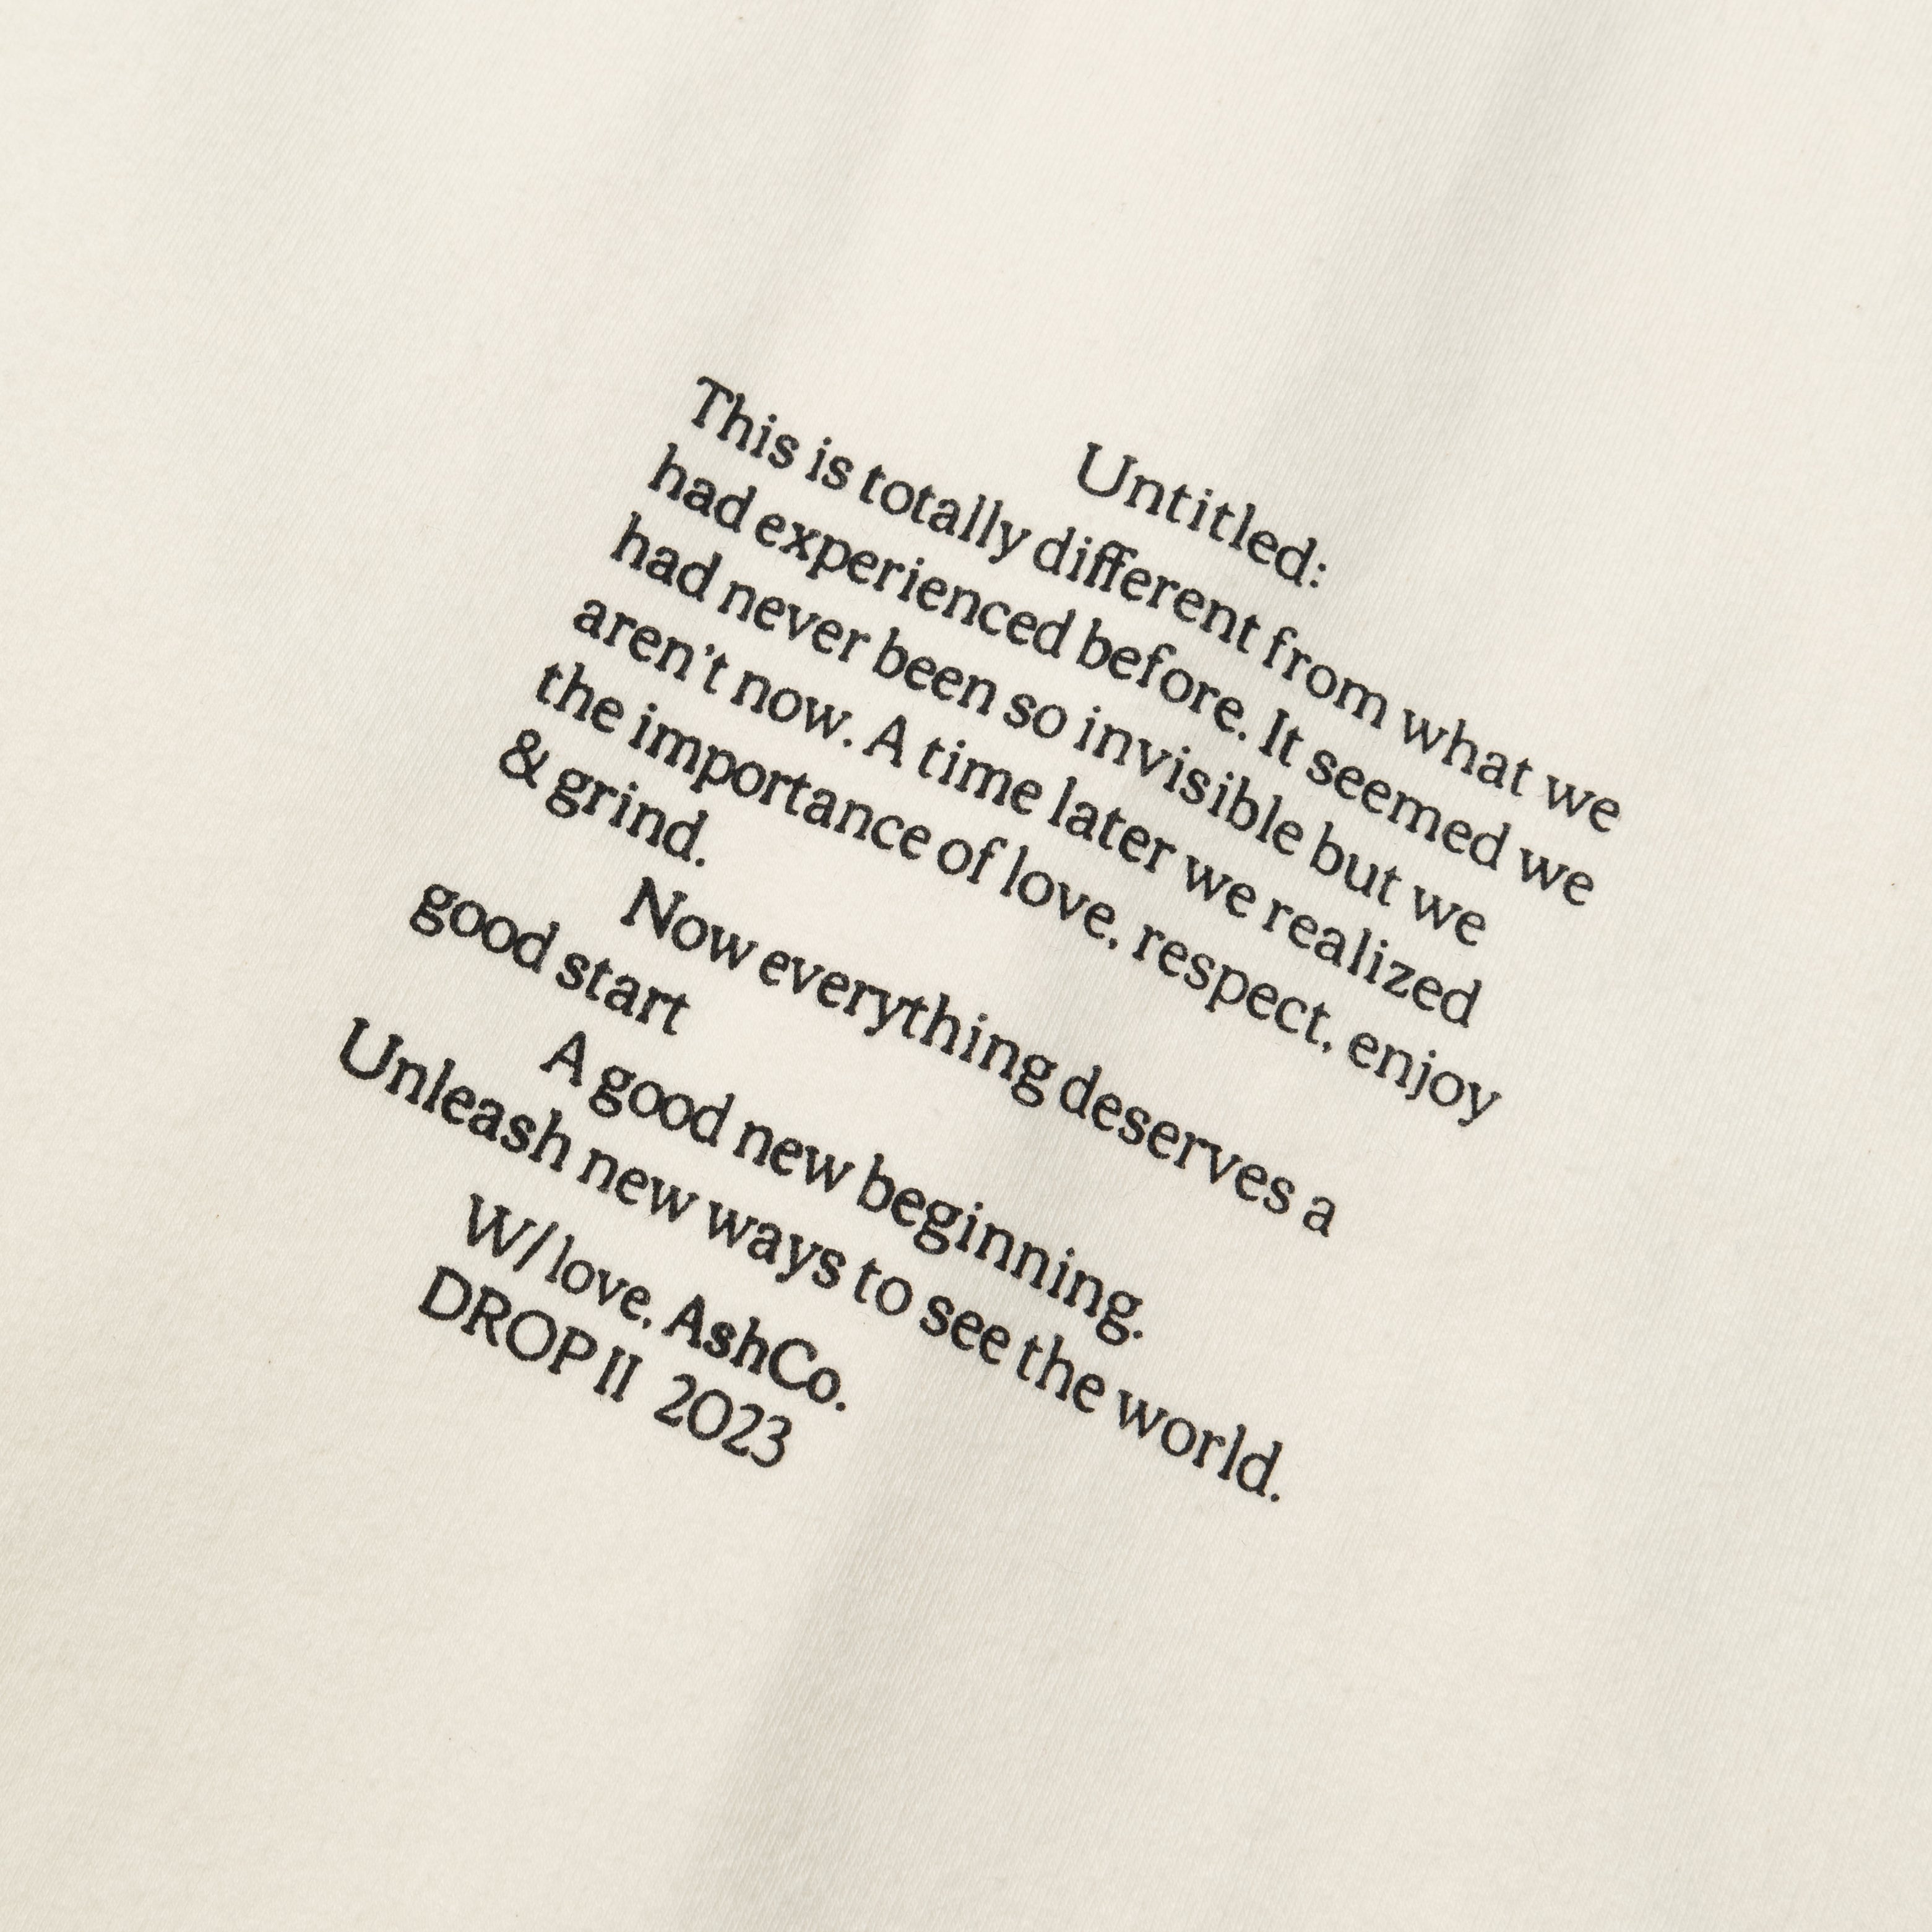 Untitled:
This is totally different from what we
had experienced before. It seemed we
had never been so invisible but we
aren't now. A time later we realized
the importance of love, respect, enjoy
& grind.
Now everything deserves a
good start
A good new beginning.
Unleash new ways to see the world.
W/love, AshCo.
DROP II 2023